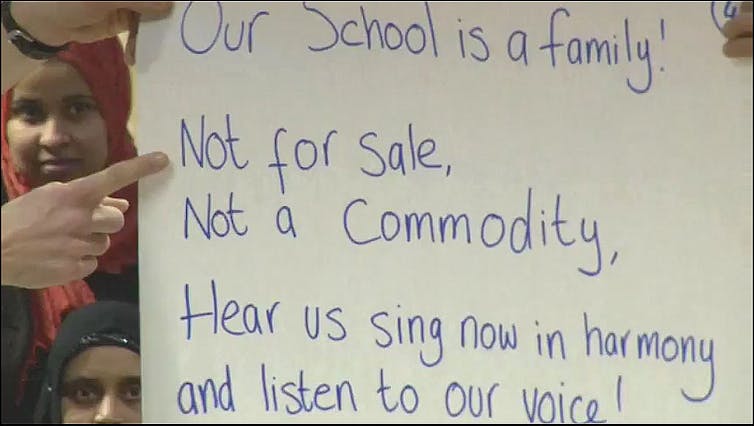 Our School is a family!
Not for sale,
Not a Commodity,
Hear us sing now in harmony
and listen to our voice!